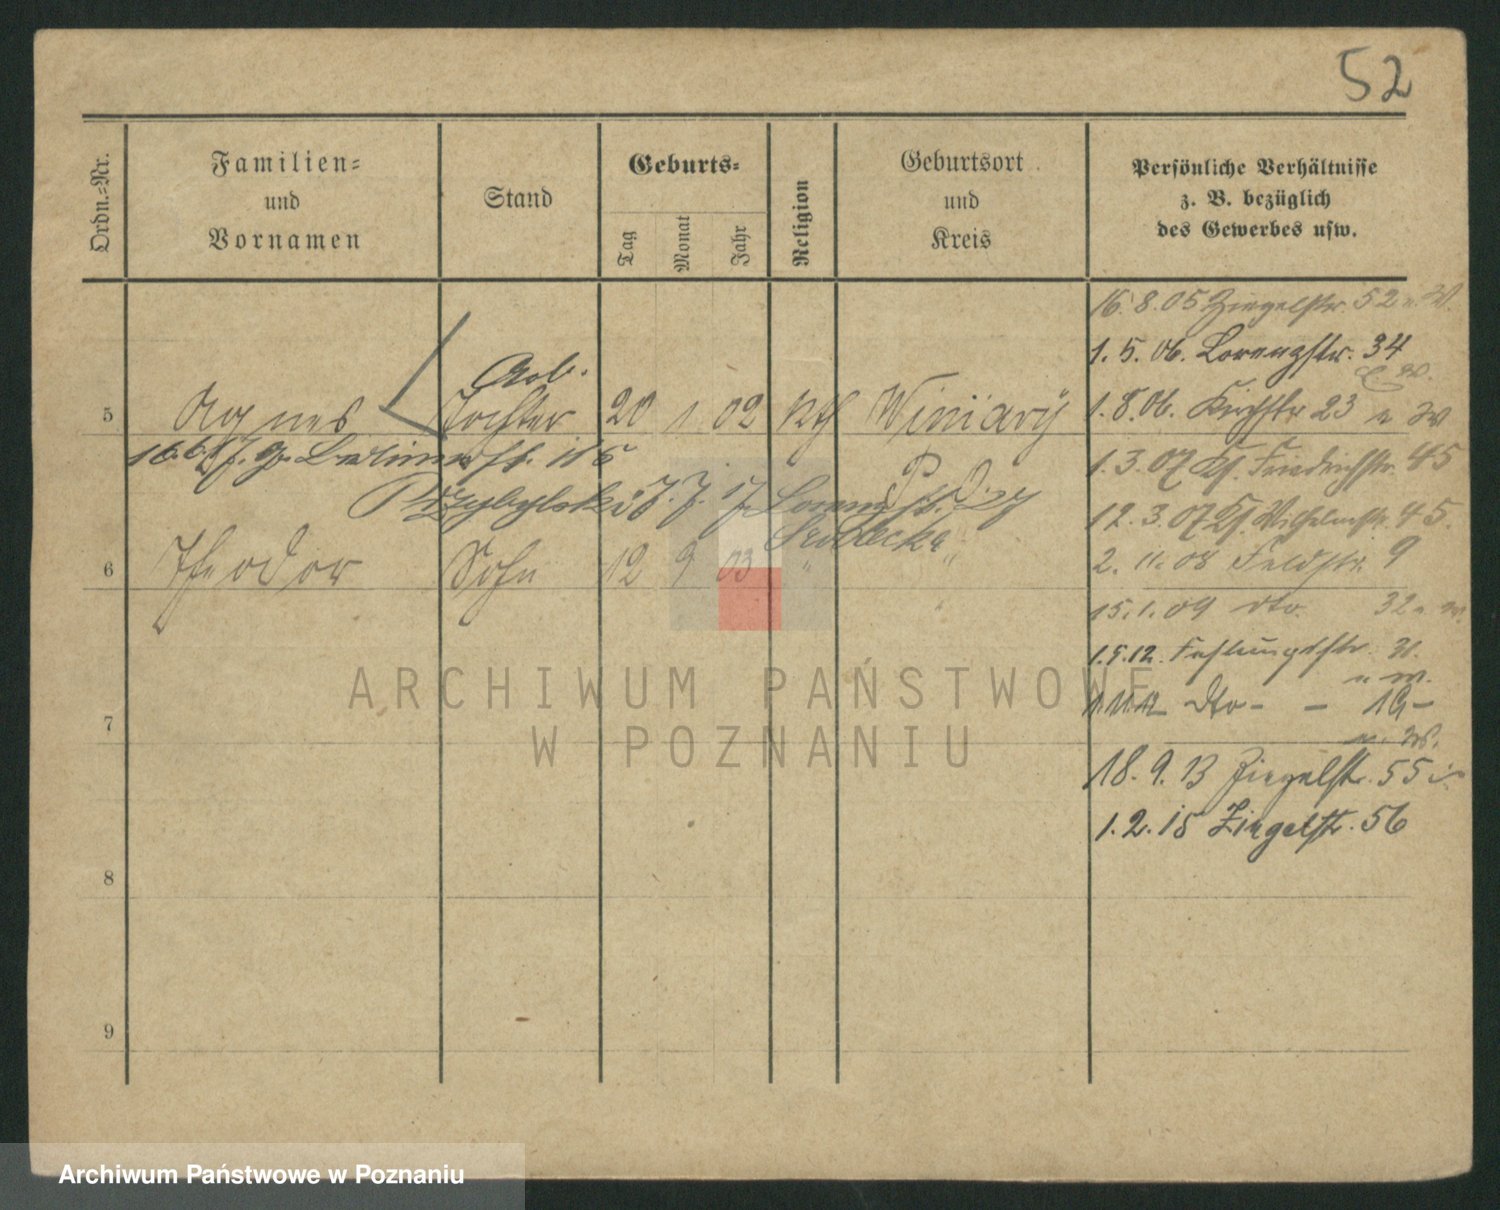 52
Ordn.-Nr.
Familien-
und
Vornamen
Stand
Geburts-
Tag
Monat
Jahr
Religion
Geburtsort
und
Kreis
Persönliche Verhältnisse
z. B. bezüglich
des Gewerbes usw.
16.8.05 Ziegelstr. 52 n. W.
1.5.06. Lorenzstr. 34
n W.
5 Agnes Tochter 20 1 02 kth Winiary
1.8.06. Kirchstr 23 n W
Przybylski
1.3.07 Friedrichstr. 45
12.3.07 Wilhelmstr. 45.
6 Theodor Sohn 12 9 03 " "
2.11.08 Feldstr. 9
15.1.09 dto. 32 n. W.
1.5.12. 31.
n W.
7
dto - - 19 -
n. W.
18.9.13 Ziegelstr. 55
1.2.15 Ziegelstr. 56
8
9
ARCHIWUM PAŃSTWOWE
W POZNANIU
Archiwum Państwowe w Poznaniu